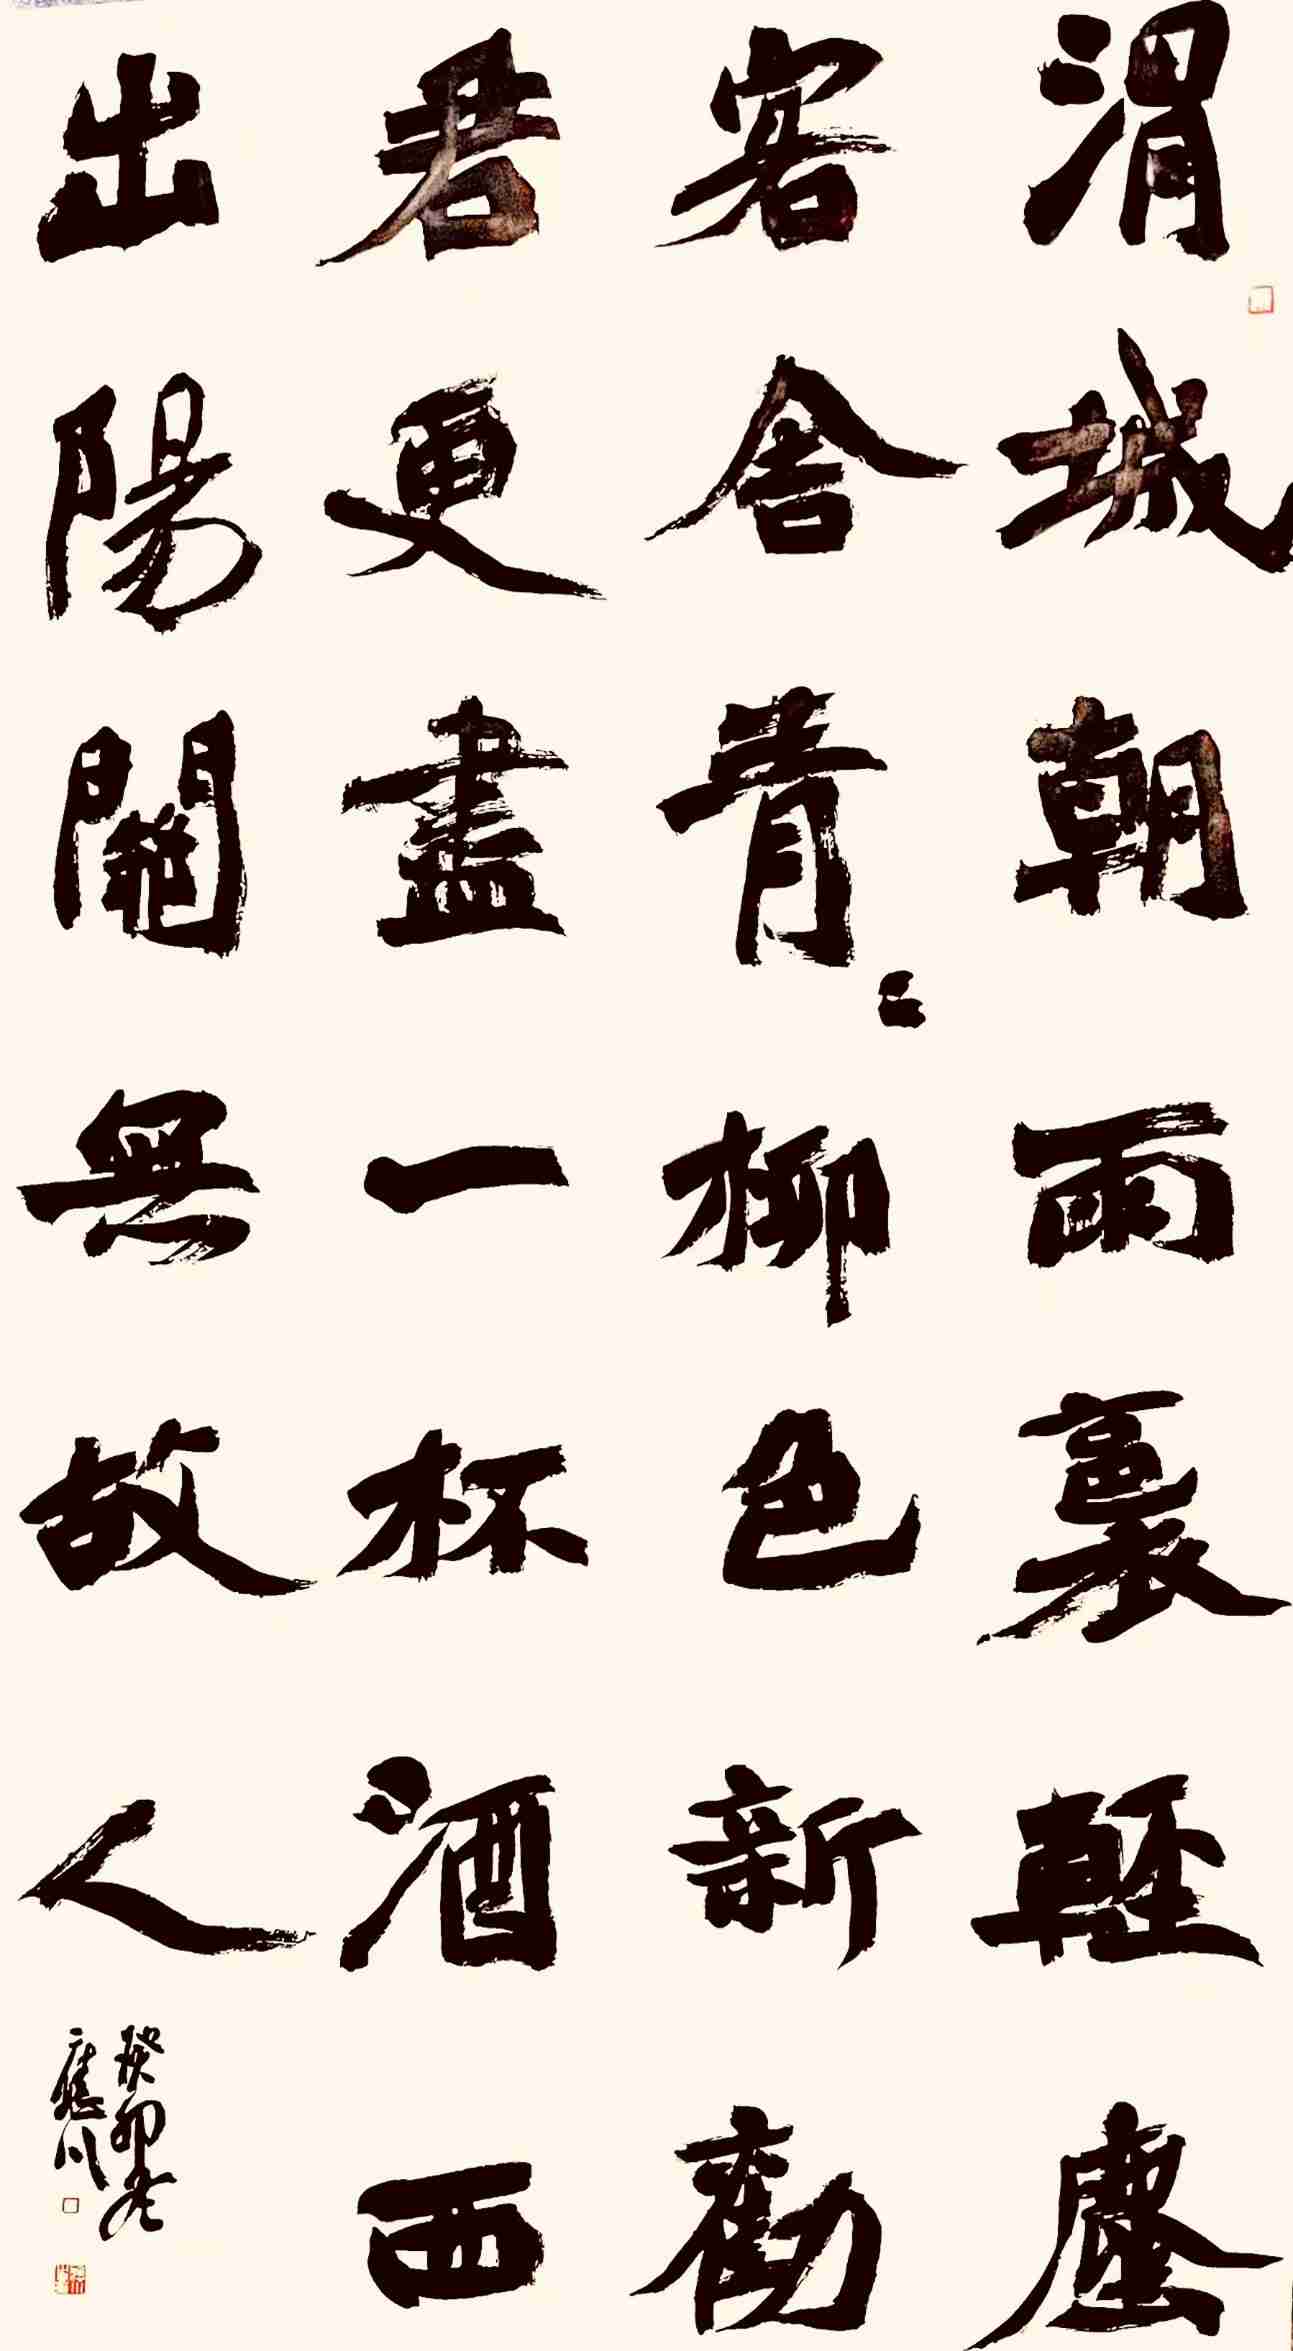 渭城朝雨裛輕塵
客舍青々柳色新勸
君更盡一杯酒西
出陽關無故人
癸卯冬
應川